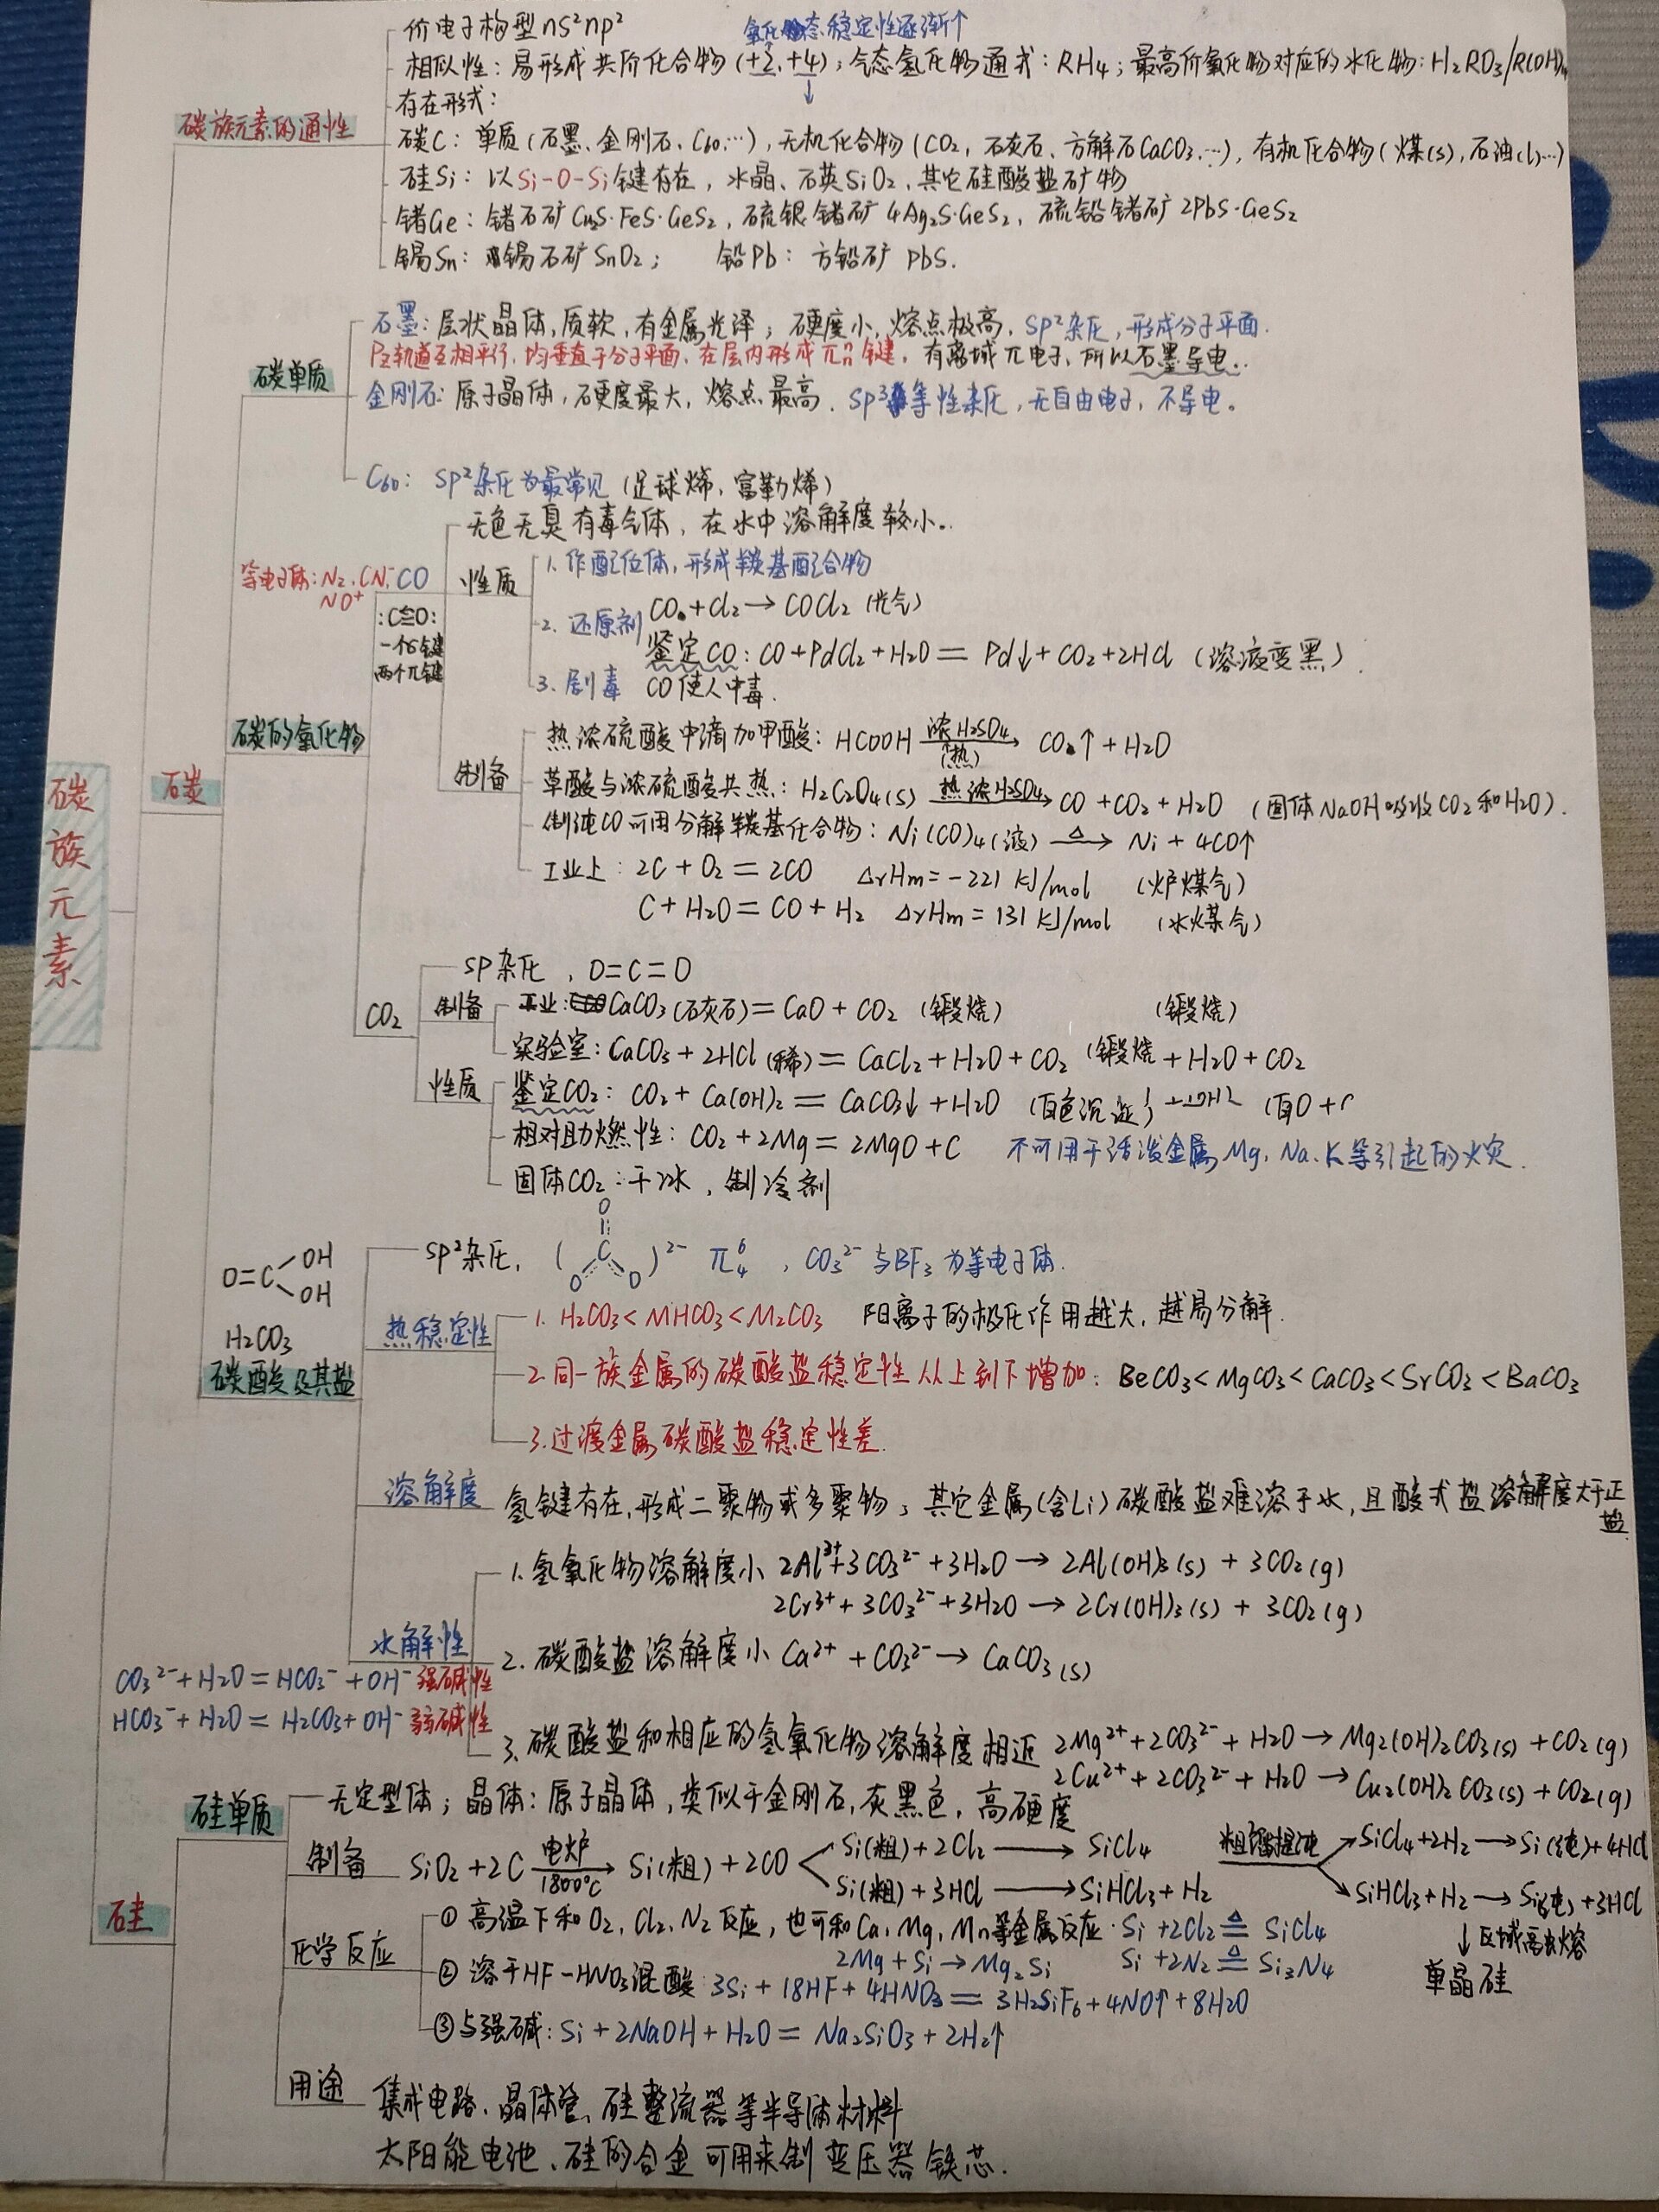 碳族元素
碳族元素的通性
价电子构型 ns²np²
氧化态稳定性逐渐↑
相似性：易形成共价化合物(+2,+4)；气态氢化物通式：RH₄；最高价氧化物对应的水化物：H₂RO₃/R(OH)ₙ
存在形式：
碳C：单质(石墨、金刚石、C₆₀…)，无机化合物(CO₂，石灰石、方解石CaCO₃…)，有机化合物(煤(s)，石油(l)…)
硅Si：以Si-O-Si键存在，水晶、石英SiO₂，其它硅酸盐矿物
锗Ge：锗石矿 Cu₂S·FeS·GeS₂，硫银锗矿 4Ag₂S·GeS₂，硫铅锗矿 2PbS·GeS₂
锡Sn：锡石矿 SnO₂； 铅Pb：方铅矿 PbS.
碳
碳单质
石墨：层状晶体，质软，有金属光泽；硬度小，熔点极高，SP²杂化，形成分子平面.
Pz轨道互相平行，均垂直于分子平面，在层内形成πₙⁿ键，有离域π电子，所以石墨导电.
金刚石：原子晶体，硬度最大，熔点最高. SP³等性杂化，无自由电子，不导电。
C₆₀： SP²杂化为最常见 (足球烯、富勒烯)
碳的氧化物
等电子体：N₂、CN⁻、CO
NO⁺
:C≡O:
一个σ键
两个π键
无色无臭有毒气体，在水中溶解度较小.
性质
1. 作配位体，形成羰基配合物
2. 还原剂 CO+Cl₂→COCl₂ (光气)
鉴定CO：CO+PdCl₂+H₂O＝Pd↓+CO₂+2HCl (溶液变黑)
3. 剧毒 CO使人中毒.
制备
热浓硫酸中滴加甲酸：HCOOH 浓H₂SO₄(热)→ CO↑+H₂O
草酸与浓硫酸共热：H₂C₂O₄(s) 热浓H₂SO₄→ CO+CO₂+H₂O (固体NaOH吸收CO₂和H₂O).
制纯CO可用分解羰基化合物：Ni(CO)₄(液) △→ Ni + 4CO↑
工业上：2C+O₂＝2CO △rHm=-221 kJ/mol (炉煤气)
C+H₂O＝CO+H₂ △rHm=131 kJ/mol (水煤气)
CO₂
SP杂化，O=C=O
制备
工业：CaCO₃(石灰石)＝CaO+CO₂ (锻烧) (锻烧)
实验室：CaCO₃+2HCl(稀)＝CaCl₂+H₂O+CO₂ (锻烧 +H₂O+CO₂
性质
鉴定CO₂：CO₂+Ca(OH)₂＝CaCO₃↓+H₂O (白色沉淀)
相对助燃性：CO₂+2Mg＝2MgO+C 不可用于活泼金属Mg、Na、K等引起的火灾.
固体CO₂：干冰，制冷剂
O=C OH OH
H₂CO₃
碳酸及其盐
SP²杂化， ( O C O O )²⁻ π₄⁶ ，CO₃²⁻与BF₃为等电子体.
热稳定性
1. H₂CO₃<MHCO₃<M₂CO₃ 阳离子的极化作用越大，越易分解.
2. 同一族金属的碳酸盐稳定性从上到下增加：BeCO₃<MgCO₃<CaCO₃<SrCO₃<BaCO₃
3. 过渡金属碳酸盐稳定性差.
溶解度 氢键存在，形成二聚物或多聚物；其它金属(含Li)碳酸盐难溶于水，且酸式盐溶解度大于正盐
水解性
CO₃²⁻+H₂O＝HCO₃⁻+OH⁻ 强碱性
HCO₃⁻+H₂O＝H₂CO₃+OH⁻ 弱碱性
1. 氢氧化物溶解度小 2Al³⁺+3CO₃²⁻+3H₂O→2Al(OH)₃(s) + 3CO₂(g)
2Cr³⁺+3CO₃²⁻+3H₂O→2Cr(OH)₃(s) + 3CO₂(g)
2. 碳酸盐溶解度小 Ca²⁺+CO₃²⁻→CaCO₃(s)
3. 碳酸盐和相应的氢氧化物溶解度相近 2Mg²⁺+2CO₃²⁻+H₂O→Mg₂(OH)₂CO₃(s)+CO₂(g)
2Cu²⁺+2CO₃²⁻+H₂O→Cu₂(OH)₂CO₃(s)+CO₂(g)
硅
硅单质
无定型体；晶体：原子晶体，类似于金刚石，灰黑色，高硬度
制备 SiO₂+2C 电炉 1800℃→ Si(粗)+2CO
Si(粗)+2Cl₂→SiCl₄
Si(粗)+3HCl→SiHCl₃+H₂
SiCl₄+2H₂→Si(纯)+4HCl
SiHCl₃+H₂→Si(纯)+3HCl
↓区域高频熔
单晶硅
化学反应
① 高温下和O₂，Cl₂，N₂反应，也可和Ca，Mg，Mn等金属反应. Si+2Cl₂ △＝ SiCl₄
2Mg+Si→Mg₂Si Si+2N₂ △＝ Si₃N₄
② 溶于HF-HNO₃混酸：3Si+18HF+4HNO₃＝3H₂SiF₆+4NO↑+8H₂O
③ 与强碱：Si+2NaOH+H₂O＝Na₂SiO₃+2H₂↑
用途 集成电路、晶体管、硅整流器等半导体材料
太阳能电池、硅的合金可用来制变压器铁芯.